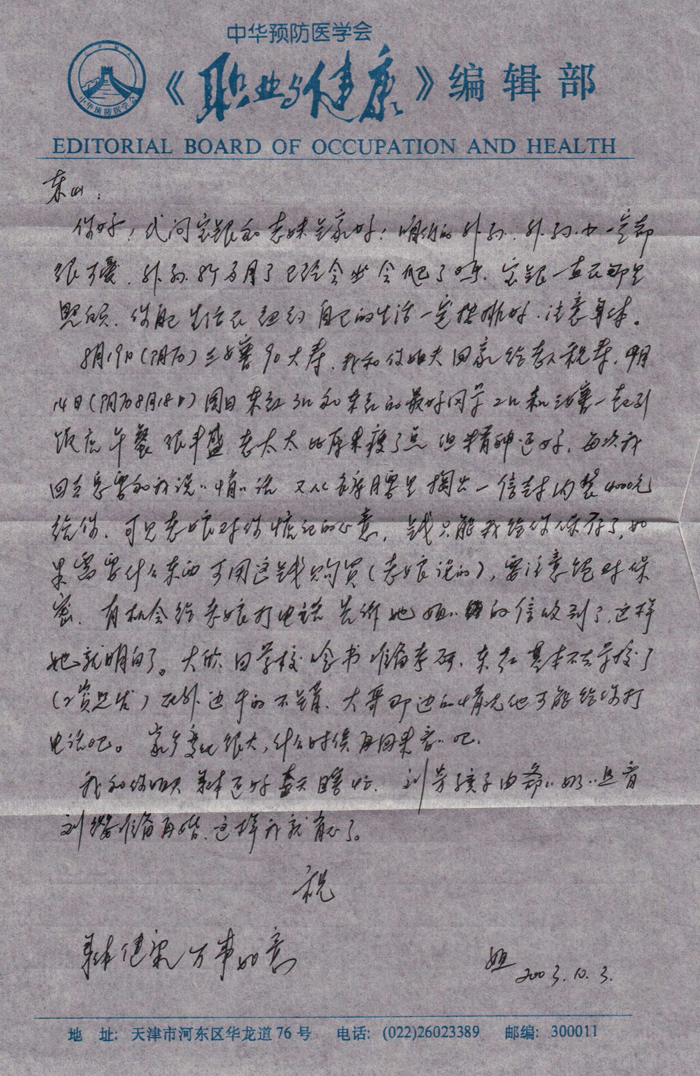 中华预防医学会
《职业与健康》编辑部
中华预防医学会
EDITORIAL BOARD OF OCCUPATION AND HEALTH
东山:
你好!代问 和 妹全家好!咱们的外孙、外孙女一定都
很可爱, 外孙 8个多月了已经会坐会爬了吧, 一直在那里
照顾,你自己生活在纽约自己的生活一定安排好,注意身体。
8月19日(阴历) 90大寿,我和你姐夫回家给老人祝寿,9月
14日(阴历8月18日)周日 和 的最好同学 2人和 一起到
饭店午餐很丰盛,老太太比原来瘦了点但精神还好,每次我
回去总要和我说心情的话,又从 里掏出一信封内装4000元
给你,可见老娘对你惦记的心意,钱只能我给你保存了,如
果需要什么东西可用这钱购买(老娘说的),要注意绝对保
密,有机会给老娘打电话告诉她姐的信收到了,这样
她就明白了。大 回学校念书准备考研,东 基本不去学校了
( )在外边干的不错,大哥那边的情况他可能给你打
电话吧。家乡变化很大,什么时候再回来看看吧。
我和你姐夫身体还好 瞎忙,刘 孩子由爷爷奶奶 看
刘 准备再婚,这样我就省心了。
祝
身体健康万事如意
姐 2003.10.3.
地 址: 天津市河东区华龙道76号 电话: (022)26023389 邮编: 300011